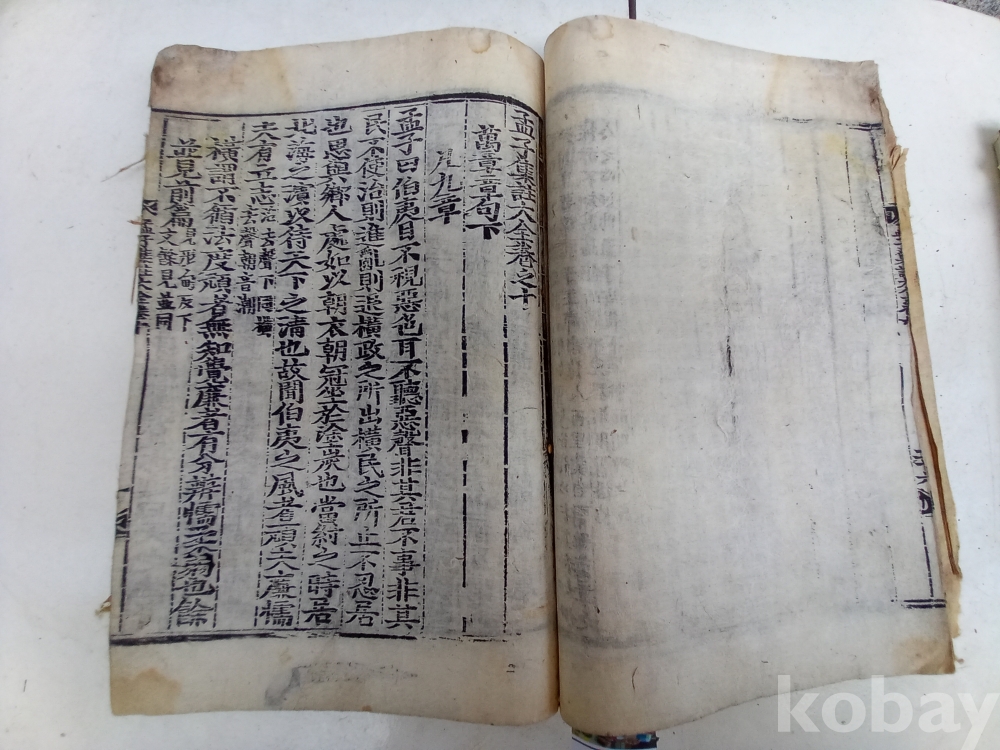 孟子集註大全卷之十
萬章章句下
凡九章
孟子曰伯夷目不視惡色耳不聽惡聲非其君不事非其
民不使治則進亂則退橫政之所出橫民之所止不忍居
也思與鄉人處如以朝衣朝冠坐於塗炭也當紂之時居
北海之濱以待天下之清也故聞伯夷之風者頑夫廉懦
夫有立志
治去聲下同橫
去聲朝音潮
橫謂不循法度頑者無知覺廉者有分辨懦柔弱也餘
並見前篇
見形甸反下
文餘見並同
孟子集註大全卷十
kobay